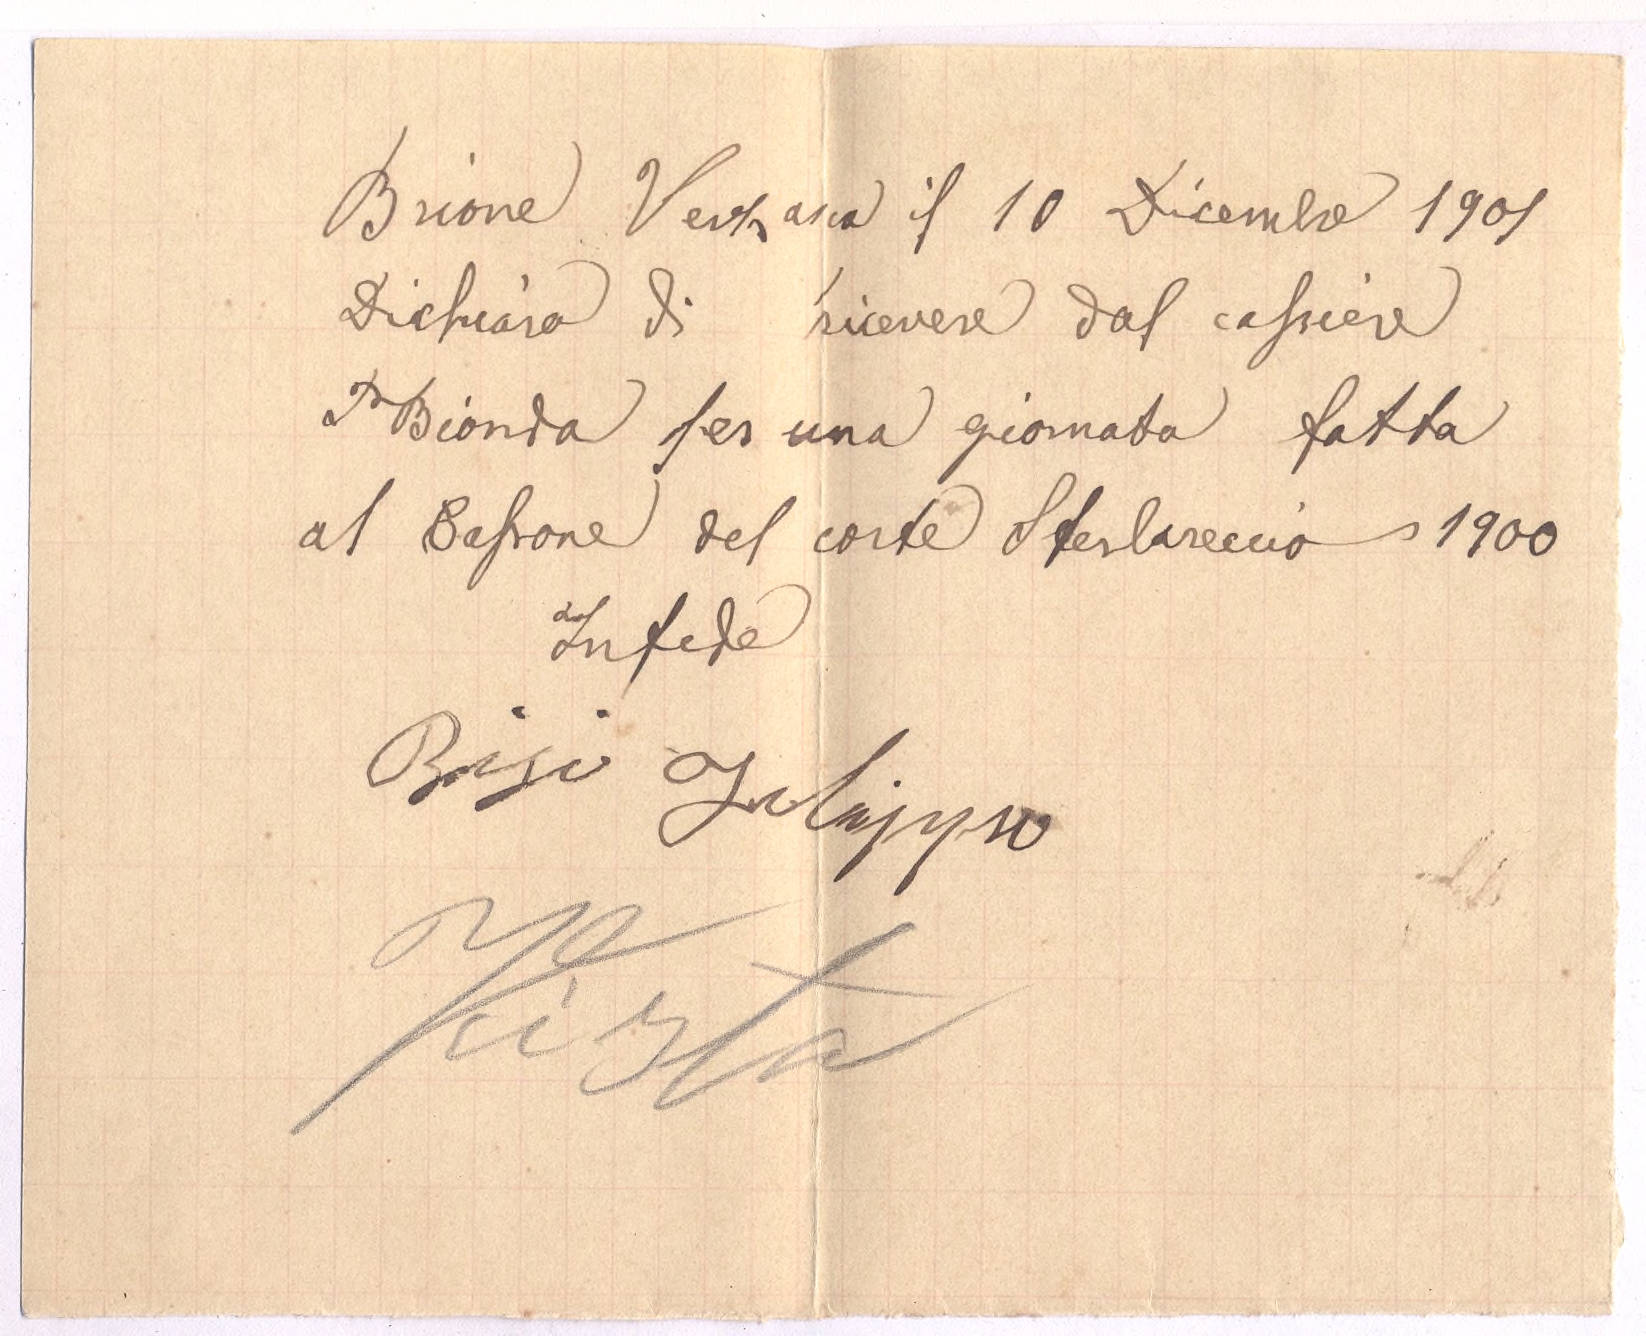 Brione Verzasca il 10 Dicembre 1901
Dichiaro di ricevere dal cassiere
Bionda per una giornata fatta
al Sassone del corte Sterlareccio 1900
In fede
Bisi Filippo
Vista